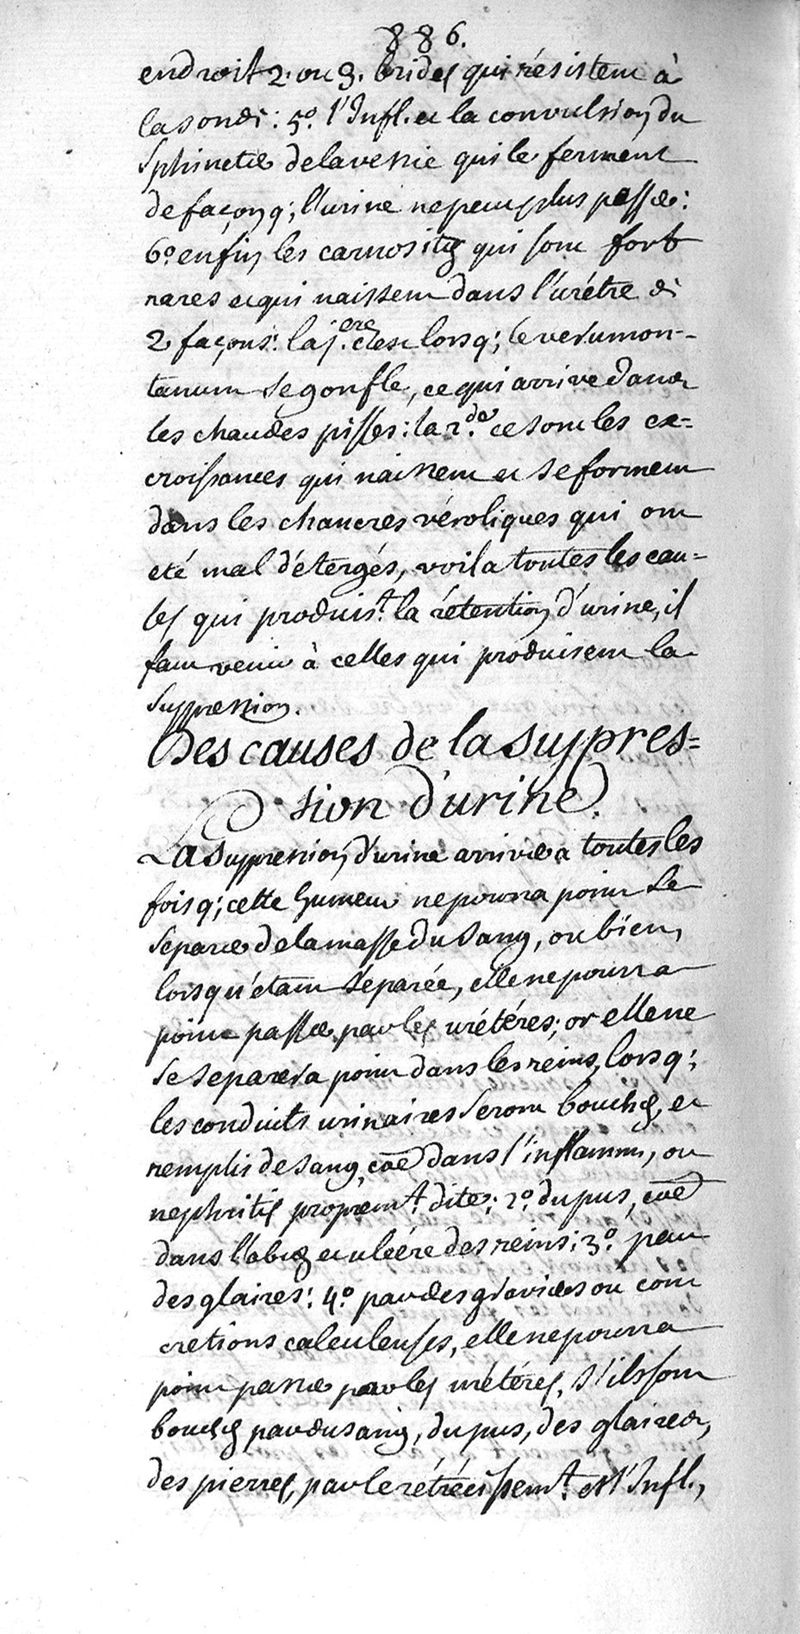 886.
endroit 2. ou 3. brides qui résistent à
la sonde: 5.° l'Infl. et la convulsion du
sphincter de la vessie qui le ferment
de façon q; l'urine ne peut plus passer:
6.° enfin les carnosités qui sont fort
rares et qui naissent dans l'urétre de
2 façons: la 1.ere c'est lorsq; le verumon-
tanum se gonfle, ce qui arrive dans
les chaudes pisses: la 2.de ce sont les ex=
croissances qui naissent et se forment
dans les chancres véroliques qui ont
eté mal détergés, voila toutes les cau=
ses qui produis.t la rétention d'urine, il
faut venir à celles qui produisent la
suppression.
Des causes de la suppres=
sion d'urine.
La suppression d'urine arrivera toutes les
fois q; cette humeur ne pourra point se
séparer de la masse du sang, ou bien,
lorsqu'étant séparée, elle ne pourra
point passer par les urétéres; or elle ne
se separera point dans les reins, lorsq;
les conduits urinaires seront bouchés, et
remplis de sang, coe dans l'inflamm, ou
nephritis proprem.t dite; 2.° du pus, coe
dans l'abcés et ulcére des reins; 3.° par
des glaires: 4.° par des graviers ou con
cretions calculeuses, elle ne pourra
point passer par les urétéres, s'ils sont
bouchés par du sang, du pus, des glaires,
des pierres, par le rétrécissem.t et l'Infl.,